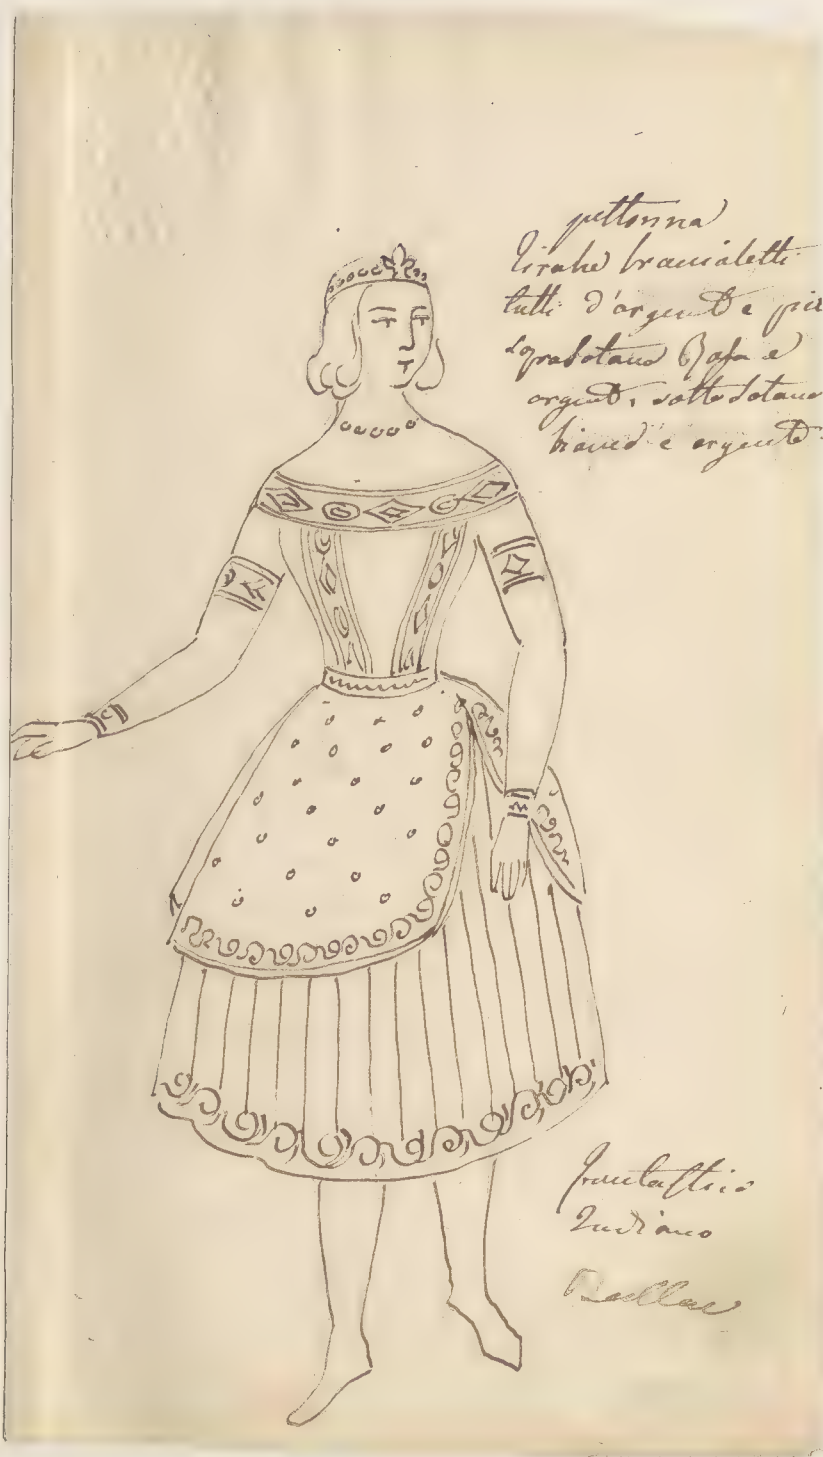 pettorina
tirahe braccialetti
tutti d'argento e
sopra sotana Rosa e
argento, sotto sotana
bianco e argento
Fantastico
Indiano